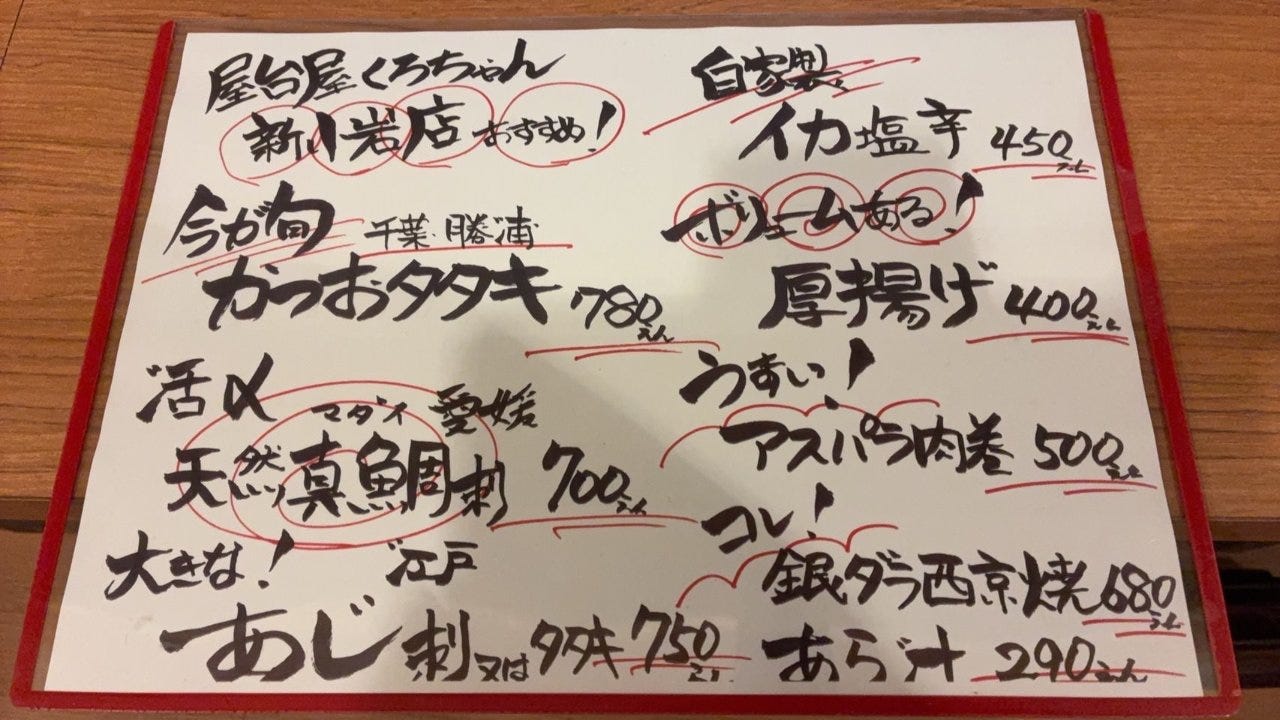 屋台屋くろちゃん
新小岩店 おすすめ!
今が旬 千葉 勝浦
かつおタタキ 780えん
活〆 マダイ 愛媛
天然真鯛刺 700えん
大きな! 江戸
あじ刺又はタタキ 750えん
自家製
イカ塩辛 450えん
ボリュームある!
厚揚げ 400えん
うすい!
アスパラ肉巻 500えん
コレ!
銀ダラ西京焼 680えん
あら汁 290えん